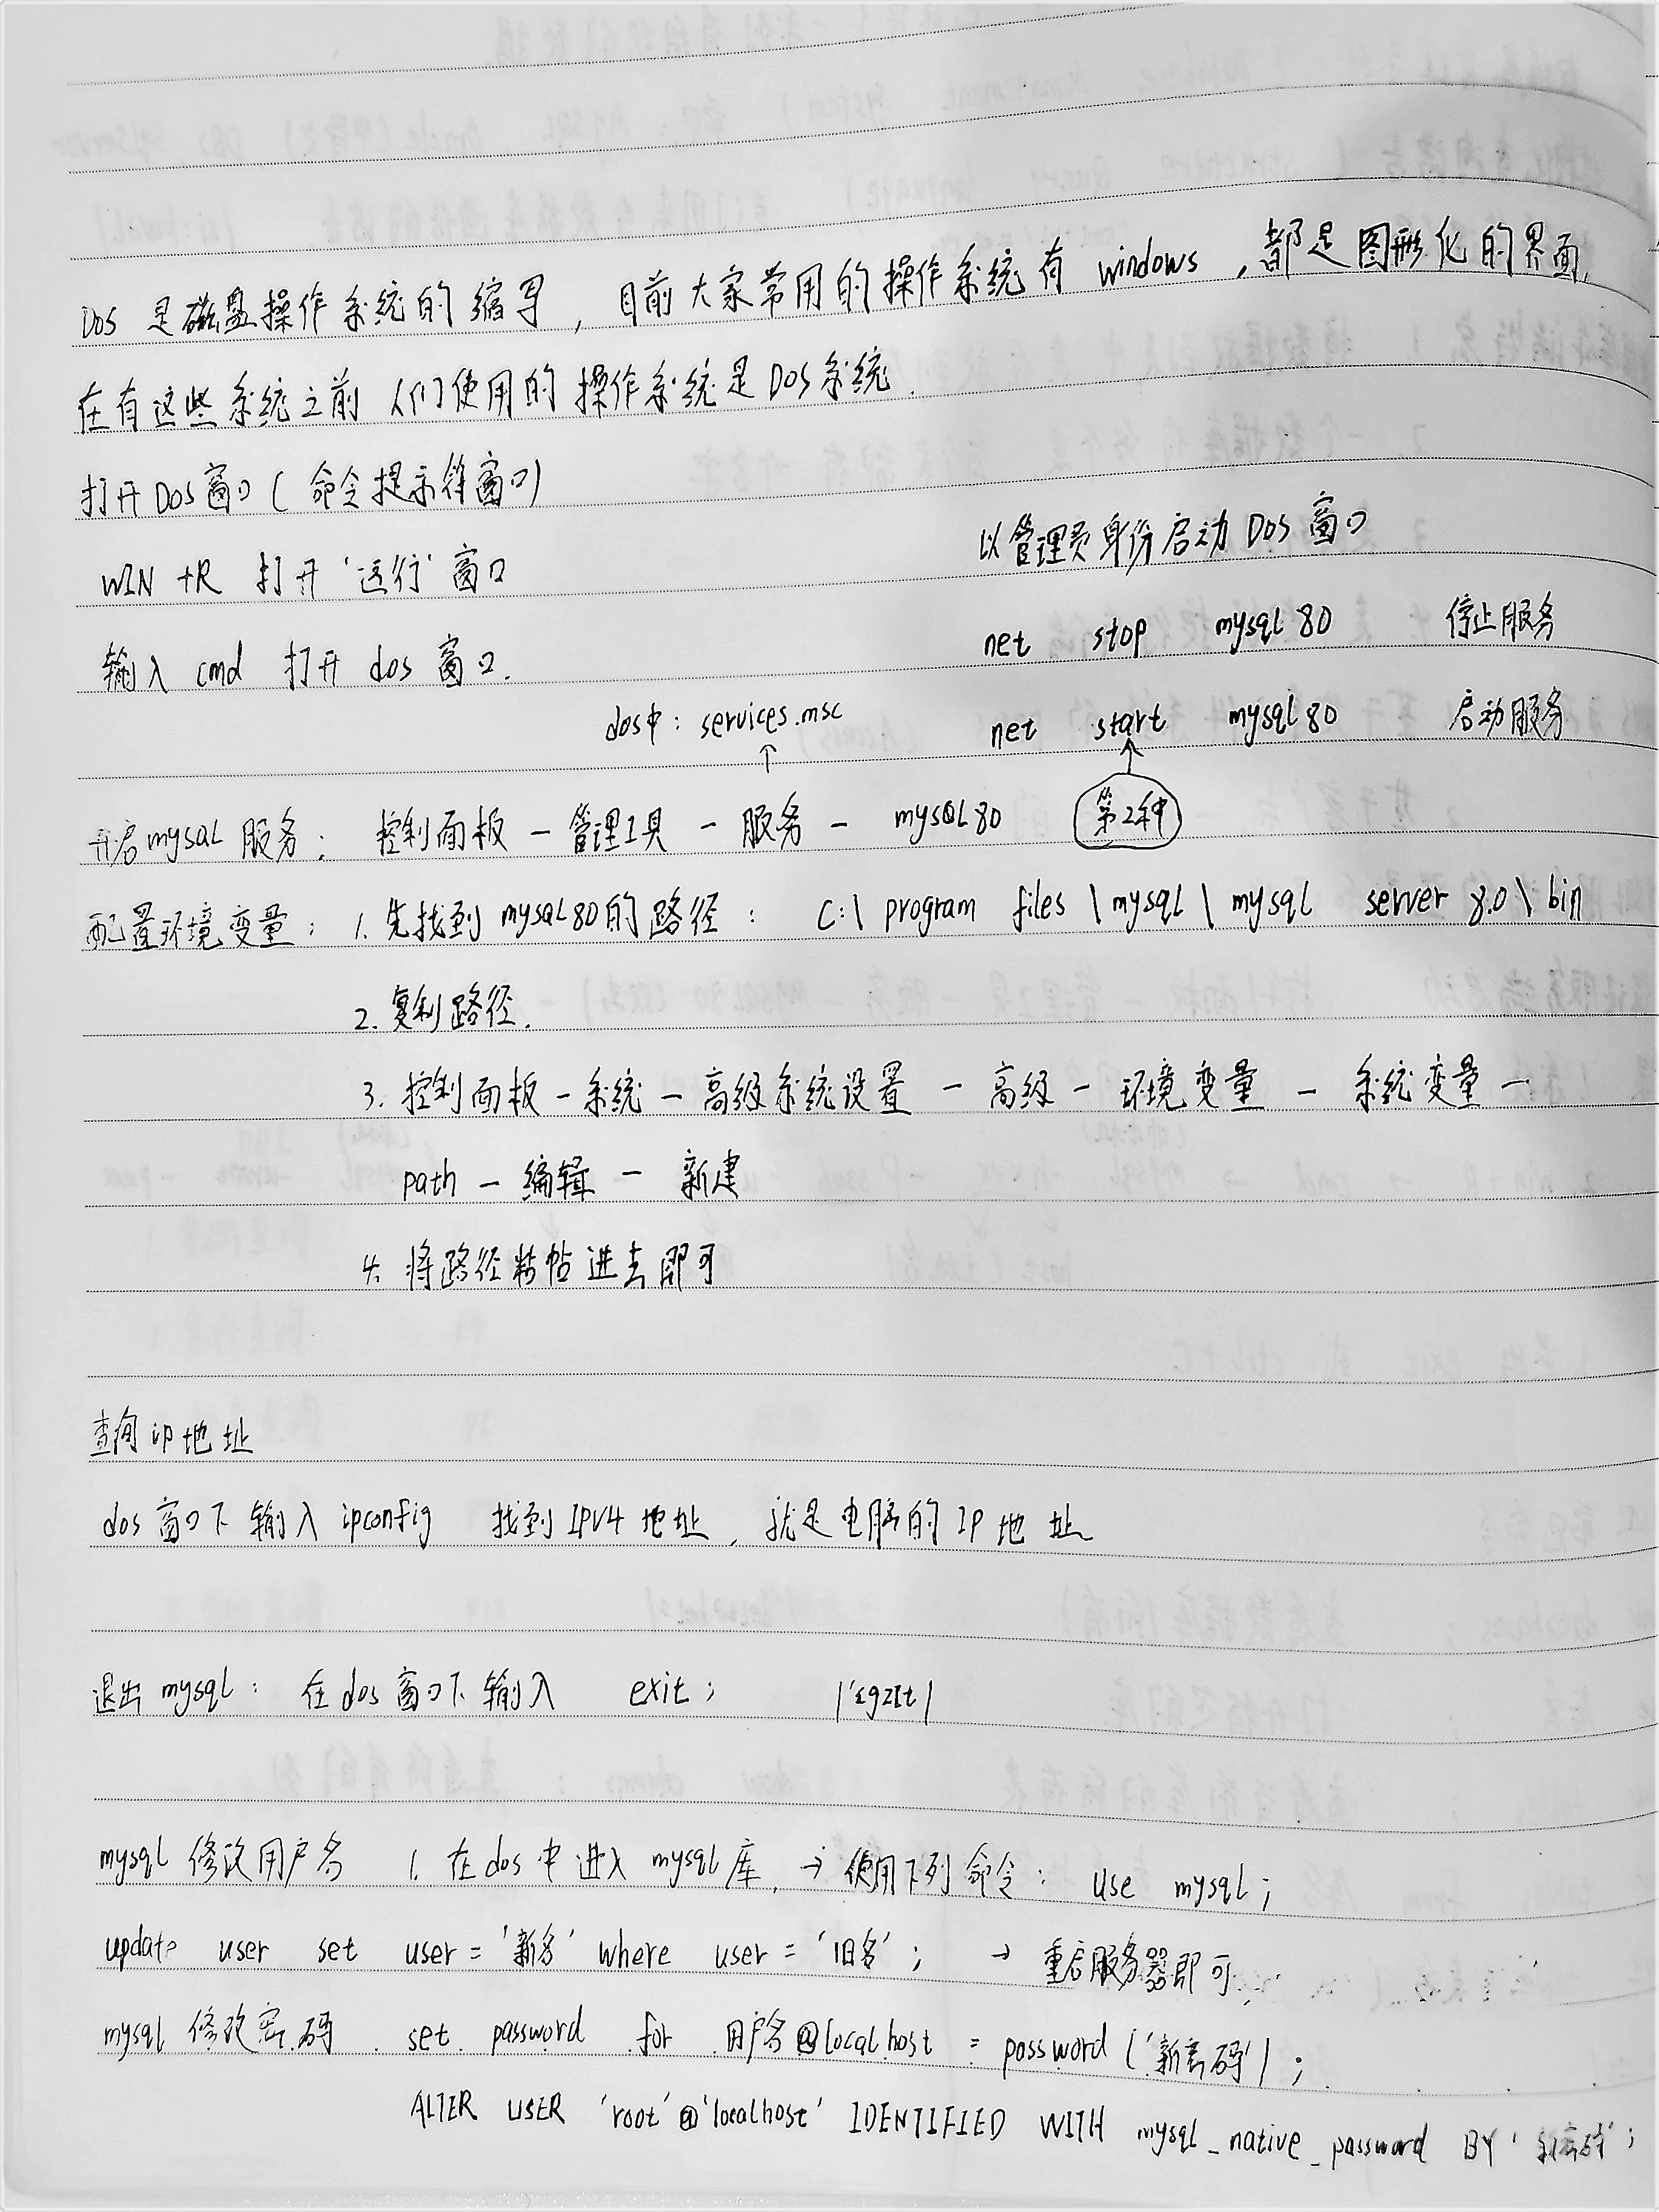 DOS 是磁盘操作系统的缩写，目前大家常用的操作系统有 windows，都是图形化的界面,
在有这些系统之前 人们使用的操作系统是DOS系统.
打开DOS窗口(命令提示符窗口)
WIN +R 打开'运行'窗口
输入 cmd 打开 dos 窗口.
以管理员身份启动 DOS 窗口
net stop mysql 80 停止服务
dos中: services.msc
↑
net start mysql 80 启动服务
↑
第2种
开启mysqL 服务: 控制面板 - 管理工具 - 服务 - mysQL80
配置环境变量: 1.先找到 mysqL80的路径: C:\ program files \ mysql \ mysql server 8.0 \ bin
2.复制路径.
3. 控制面板 - 系统 - 高级系统设置 - 高级 - 环境变量 - 系统变量 -
path - 编辑 - 新建
4. 将路径粘帖进去即可
查询ip地址
dos窗口下 输入 ipconfig 找到 IPV4 地址, 就是电脑的IP地址
退出mysql: 在dos窗口下 输入 exit;
mysql 修改用户名 1. 在dos中进入 mysql库, → 使用下列命令: use mysql;
update user set user = '新名' where user = '旧名'; → 重启服务器即可
mysql 修改密码 set password for 用户名@localhost = password ('新密码');
ALTER USER 'root'@'localhost' IDENTIFIED WITH mysql_native_password BY '新密码';